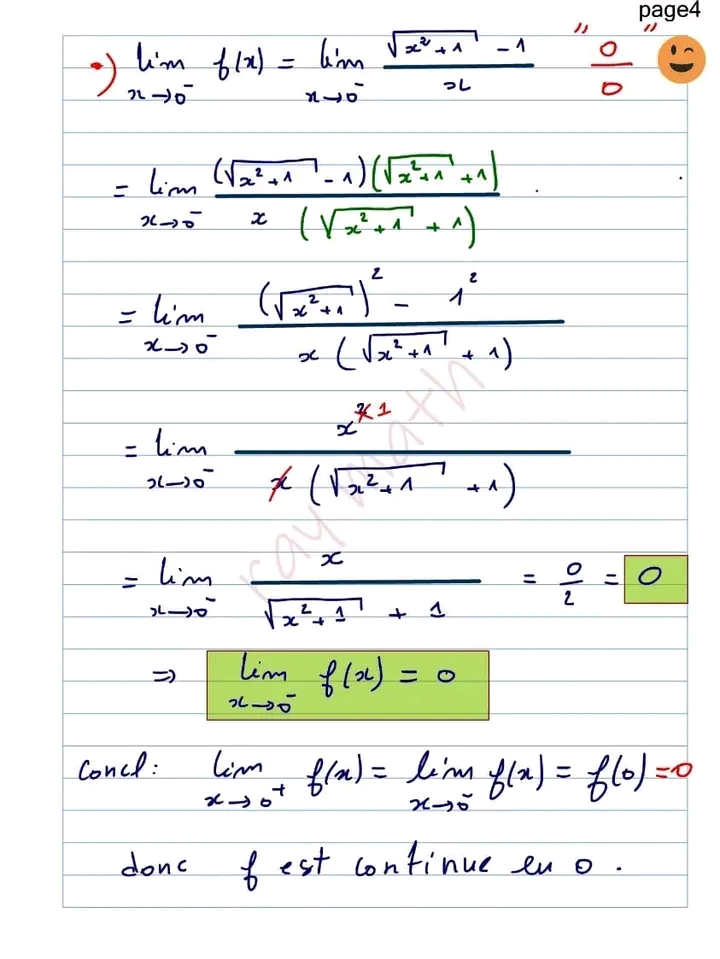 page4
•) lim x→0⁻ f(x) = lim x→0⁻ (√(x²+1) - 1)/x "0/0"
= lim x→0⁻ (√(x²+1) - 1)(√(x²+1) + 1) / x (√(x²+1) + 1)
= lim x→0⁻ ((√(x²+1))² - 1²) / x (√(x²+1) + 1)
= lim x→0⁻ x² 1 / x (√(x²+1) + 1)
= lim x→0⁻ x / (√(x²+1) + 1) = 0/2 = 0
⇒ lim x→0⁻ f(x) = 0
Concl: lim x→0⁺ f(x) = lim x→0⁻ f(x) = f(0) = 0
donc f est continue en 0.
ray math